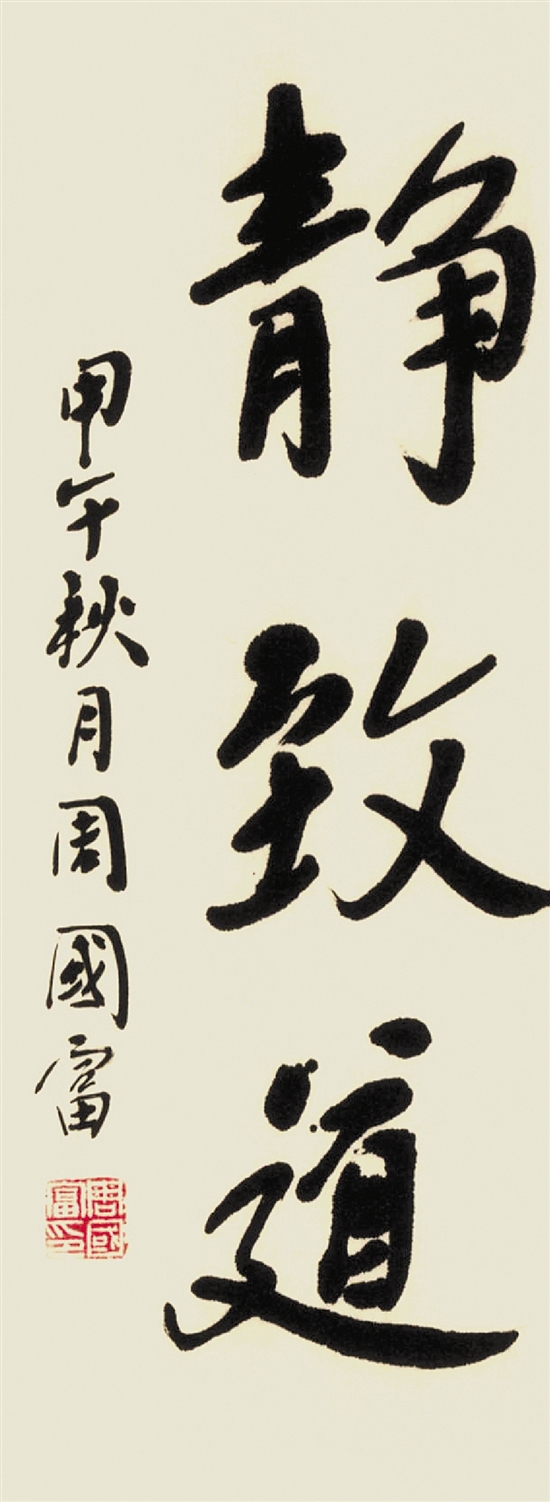 静致道
甲午秋月周國富
周國富印